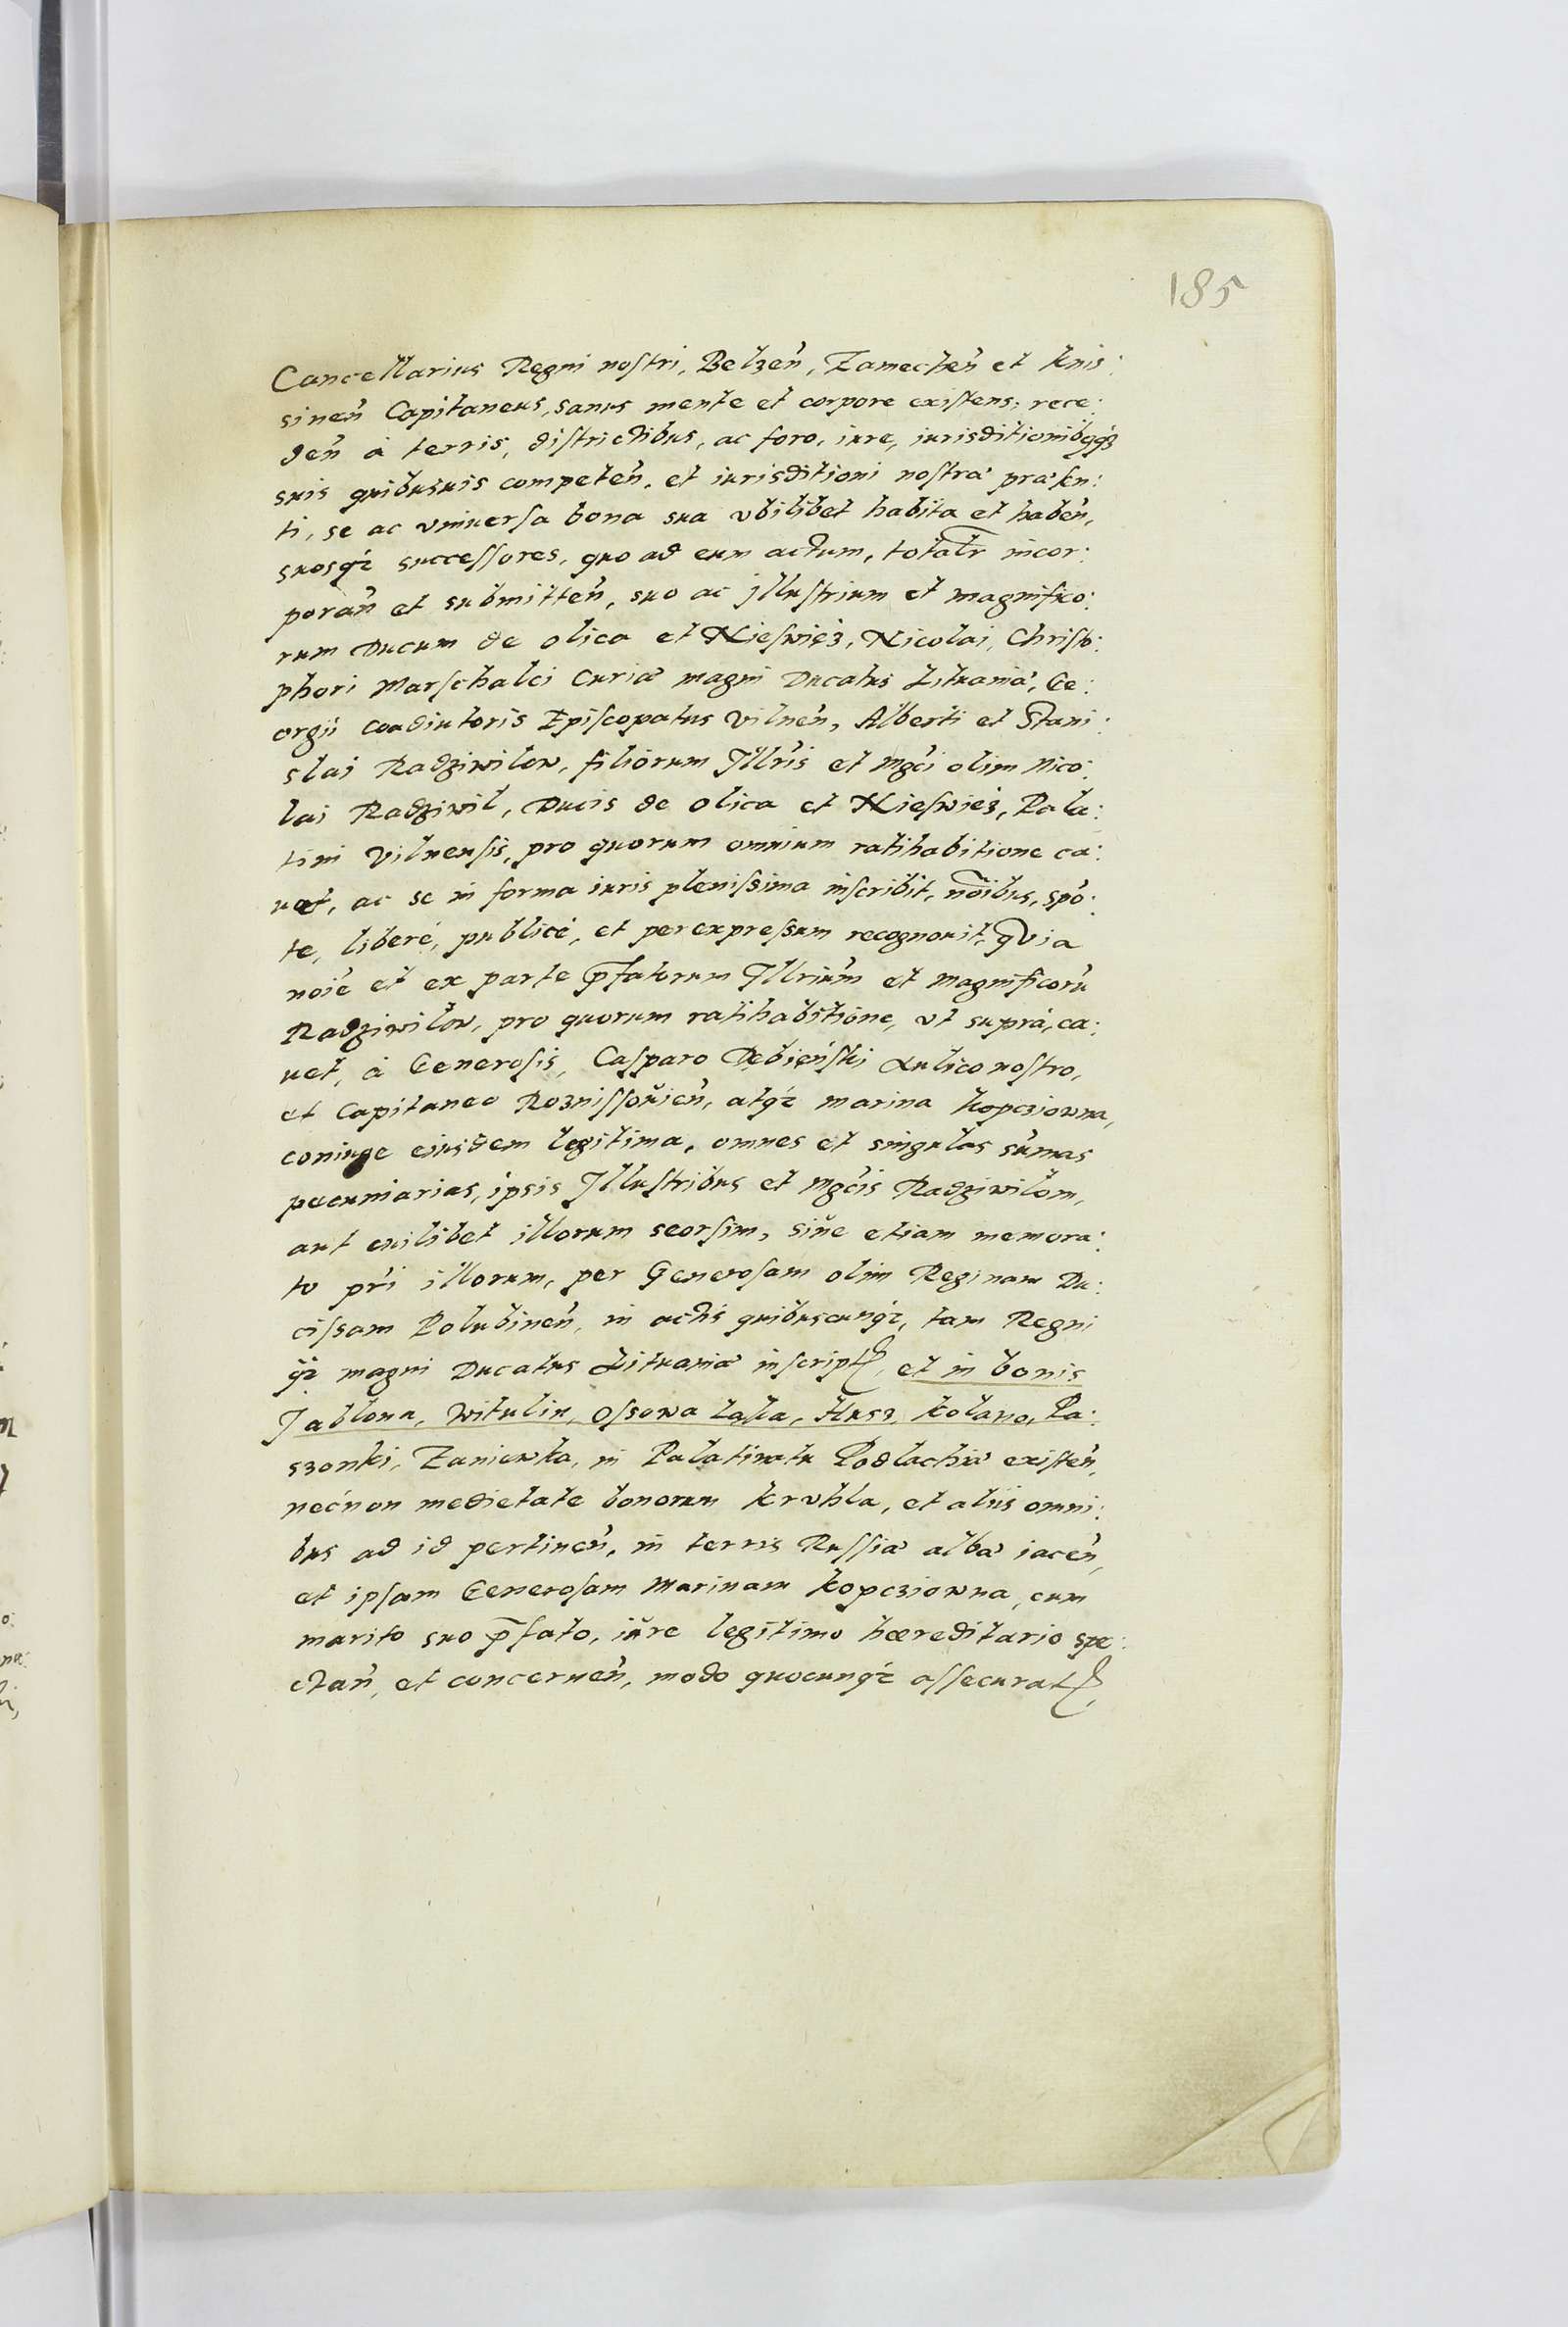 185
Cancellarius Regni nostri, Belzen̄, Zamechen̄ et Knis:
sinen̄ Capitaneus, sanus mente et corpore existens, rece:
den̄ à terris, districtibus, ac foro, iure, iurisditionibqq́ꝫ
suis quibusuis competen̄, et iurisditioni nostræ præsen:
ti, se ac vniuersa bona sua vbilibet habita et haben̄,
suosq́ꝫ successores, quo ad eum actum, totalr̄ incor:
poran̄ et submitten̄, suo ac jllustrium et magnifico:
rum Ducum de Olica et Nieswież, Nicolai, Christo:
phori Marschalci Curiæ magni Ducatus Lituaniæ, Ge:
orgii coadiutoris Episcopatus Vilnen̄, Alberti et Stani:
slai Radziwilow, filiorum Jllr̄is et Mgc̄i olim Nico:
lai Radziwil, Ducis de Olica et Nieswież, Pala:
tini Vilnensis, pro quorum omnium ratihabitione ca:
uet, ac se in forma iuris plenissima inscribit, nōibus, spō:
te, liberè, publicè, et per expressum recognouit, Quia
noīe et ex parte p̄fatorum Jllriūm et Magnificorū
Radziwilow, pro quorum ratihabitione, vt suprà, ca:
uet, à Generosis, Casparo Dębieński Aulico nostro,
et Capitaneo Roznissouien̄, atq́ꝫ Marina Kopcziowna,
coniuge eiusdem legitima, omnes et singulas sum̄as
pecuniarias, ipsis Jllustribus et Mgc̄is Radziwilom,
aut cuilibet illorum seorsim, siue etiam memora:
to pr̄i illorum, per Generosam olim Reginam Du:
cissam Polubinen̄, in actis quibuscunq́ꝫ, tam Regni
q̃ꝫ magni Ducatus Lituaniæ inscriptꝭ, et in bonis
Jablonn, Witulin, Ossowa Laka, Husz, Kolano, Pa:
szonki, Zaniewka, in Palatinatu Podlachiæ existen̄,
nec̄non medietate bonorum Kruhla, et aliis omni:
bus ad id pertinen̄, in terris Russiæ albæ iacen̄,
et ipsam Generosam Marinam Kopcziowna, cum
marito suo p̄fato, iure legitimo hæreditario spe:
ctan̄, et concernen̄, modo quocunq́ꝫ assecuratꝭ,